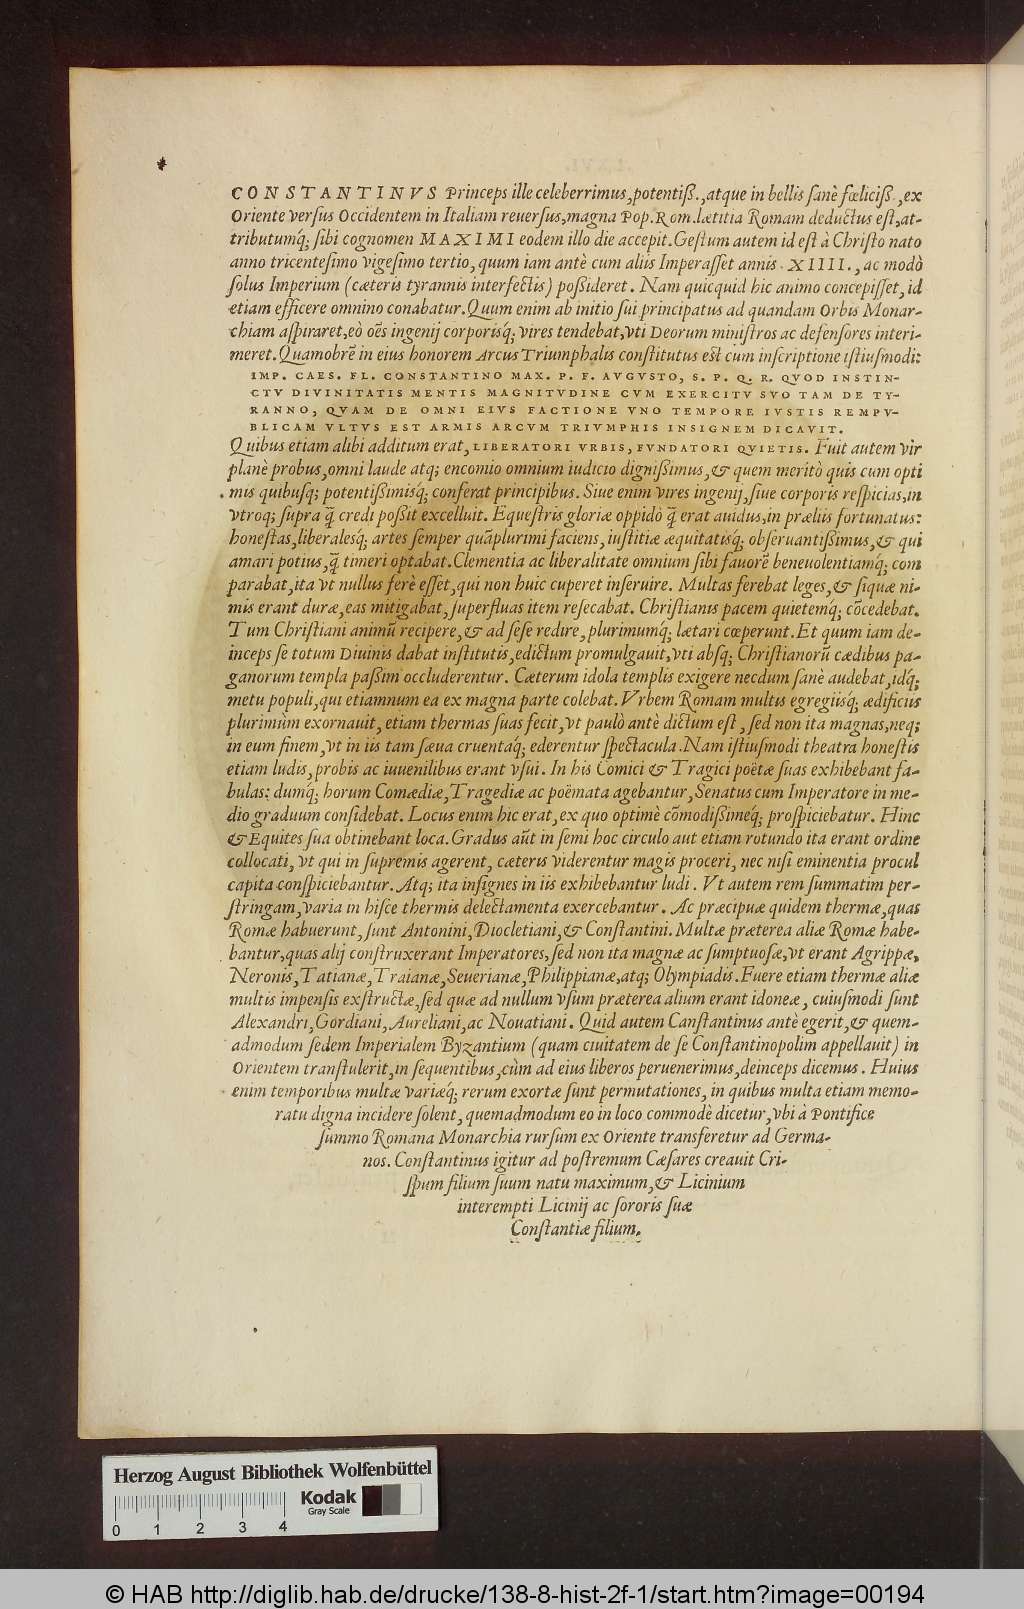 CONSTANTINVS Princeps ille celeberrimus, potentiß., atque in bellis ſanè fœliciß., ex
Oriente verſus Occidentem in Italiam reuerſus, magna Pop. Rom. lætitia Romam deductus eſt, at-
tributumq́; ſibi cognomen MAXIMI eodem illo die accepit. Geſtum autem id eſt à Chriſto nato
anno tricenteſimo vigeſimo tertio, quum iam antè cum aliis Imperaſſet annis XIIII., ac modò
ſolus Imperium (cæteris tyrannis interfectis) poßideret. Nam quicquid hic animo concepiſſet, id
etiam efficere omnino conabatur. Quum enim ab initio ſui principatus ad quandam Orbis Monar-
chiam aſpiraret, eò oẽs ingenij corporisq́; vires tendebat, vti Deorum miniſtros ac defenſores interi-
meret. Quamobrẽ in eius honorem Arcus Triumphalis conſtitutus eſt cum inſcriptione iſtiuſmodi:
IMP. CAES. FL. CONSTANTINO MAX. P. F. AVGVSTO, S. P. Q. R. QVOD INSTIN-
CTV DIVINITATIS MENTIS MAGNITVDINE CVM EXERCITV SVO TAM DE TY-
RANNO, QVAM DE OMNI EIVS FACTIONE VNO TEMPORE IVSTIS REMPV-
BLICAM VLTVS EST ARMIS ARCVM TRIVMPHIS INSIGNEM DICAVIT.
Quibus etiam alibi additum erat, LIBERATORI VRBIS, FVNDATORI QVIETIS. Fuit autem vir
planè probus, omni laude atq; encomio omnium iudicio dignißimus, & quem meritò quis cum opti
mis quibuſq; potentißimisq́; conferat principibus. Siue enim vires ingenij, ſiue corporis reſpicias, in
vtroq; ſupra q̃ credi poßit excelluit. Equeſtris gloriæ oppidò q̃ erat auidus, in præliis fortunatus:
honeſtas, liberalesq́; artes ſemper quãplurimi faciens, iuſtitiæ æquitatisq́; obſeruantißimus, & qui
amari potius, q̃ timeri optabat. Clementia ac liberalitate omnium ſibi fauorẽ beneuolentiamq́; com
parabat, ita vt nullus ferè eſſet, qui non huic cuperet inſeruire. Multas ferebat leges, & ſiquæ ni-
mis erant duræ, eas mitigabat, ſuperfluas item reſecabat. Chriſtianis pacem quietemq́; cõcedebat.
Tum Chriſtiani animũ recipere, & ad ſeſe redire, plurimumq́; lætari cœperunt. Et quum iam de-
inceps ſe totum Diuinis dabat inſtitutis, edictum promulgauit, vti abſq; Chriſtianorũ cædibus pa-
ganorum templa paßim occluderentur. Cæterum idola templis exigere necdum ſanè audebat, idq́;
metu populi, qui etiamnum ea ex magna parte colebat. Vrbem Romam multis egregiisq́; ædificiis
plurimùm exornauit, etiam thermas ſuas fecit, vt paulò antè dictum eſt, ſed non ita magnas, neq;
in eum finem, vt in iis tam ſæua cruentaq́; ederentur ſpectacula. Nam iſtiuſmodi theatra honeſtis
etiam ludis, probis ac iuuenilibus erant vſui. In his Comici & Tragici poëtæ ſuas exhibebant fa-
bulas: dumq́; horum Comædiæ, Tragediæ ac poëmata agebantur, Senatus cum Imperatore in me-
dio graduum conſidebat. Locus enim hic erat, ex quo optimè cõmodißimeq́; proſpiciebatur. Hinc
& Equites ſua obtinebant loca. Gradus aũt in ſemi hoc circulo aut etiam rotundo ita erant ordine
collocati, vt qui in ſupremis agerent, cæteris viderentur magis proceri, nec niſi eminentia procul
capita conſpiciebantur. Atq; ita inſignes in iis exhibebantur ludi. Vt autem rem ſummatim per-
ſtringam, varia in hiſce thermis delectamenta exercebantur. Ac præcipuæ quidem thermæ, quas
Romæ habuerunt, ſunt Antonini, Diocletiani, & Conſtantini. Multæ præterea aliæ Romæ habe-
bantur, quas alij conſtruxerant Imperatores, ſed non ita magnæ ac ſumptuoſæ, vt erant Agrippæ,
Neronis, Tatianæ, Traianæ, Seuerianæ, Philippianæ, atq; Olympiadis. Fuere etiam thermæ aliæ
multis impenſis exſtructæ, ſed quæ ad nullum vſum præterea alium erant idoneæ, cuiuſmodi ſunt
Alexandri, Gordiani, Aureliani, ac Nouatiani. Quid autem Canſtantinus antè egerit, & quem-
admodum ſedem Imperialem Byzantium (quam ciuitatem de ſe Conſtantinopolim appellauit) in
Orientem tranſtulerit, in ſequentibus, cùm ad eius liberos peruenerimus, deinceps dicemus. Huius
enim temporibus multæ variæq́; rerum exortæ ſunt permutationes, in quibus multa etiam memo-
ratu digna incidere ſolent, quemadmodum eo in loco commodè dicetur, vbi à Pontifice
ſummo Romana Monarchia rurſum ex Oriente transferetur ad Germa-
nos. Conſtantinus igitur ad poſtremum Cæſares creauit Cri-
ſpum filium ſuum natu maximum, & Licinium
interempti Licinij ac ſororis ſuæ
Conſtantiæ filium.
Herzog August Bibliothek Wolfenbüttel
Kodak
Gray Scale
0 1 2 3 4
© HAB http://diglib.hab.de/drucke/138-8-hist-2f-1/start.htm?image=00194